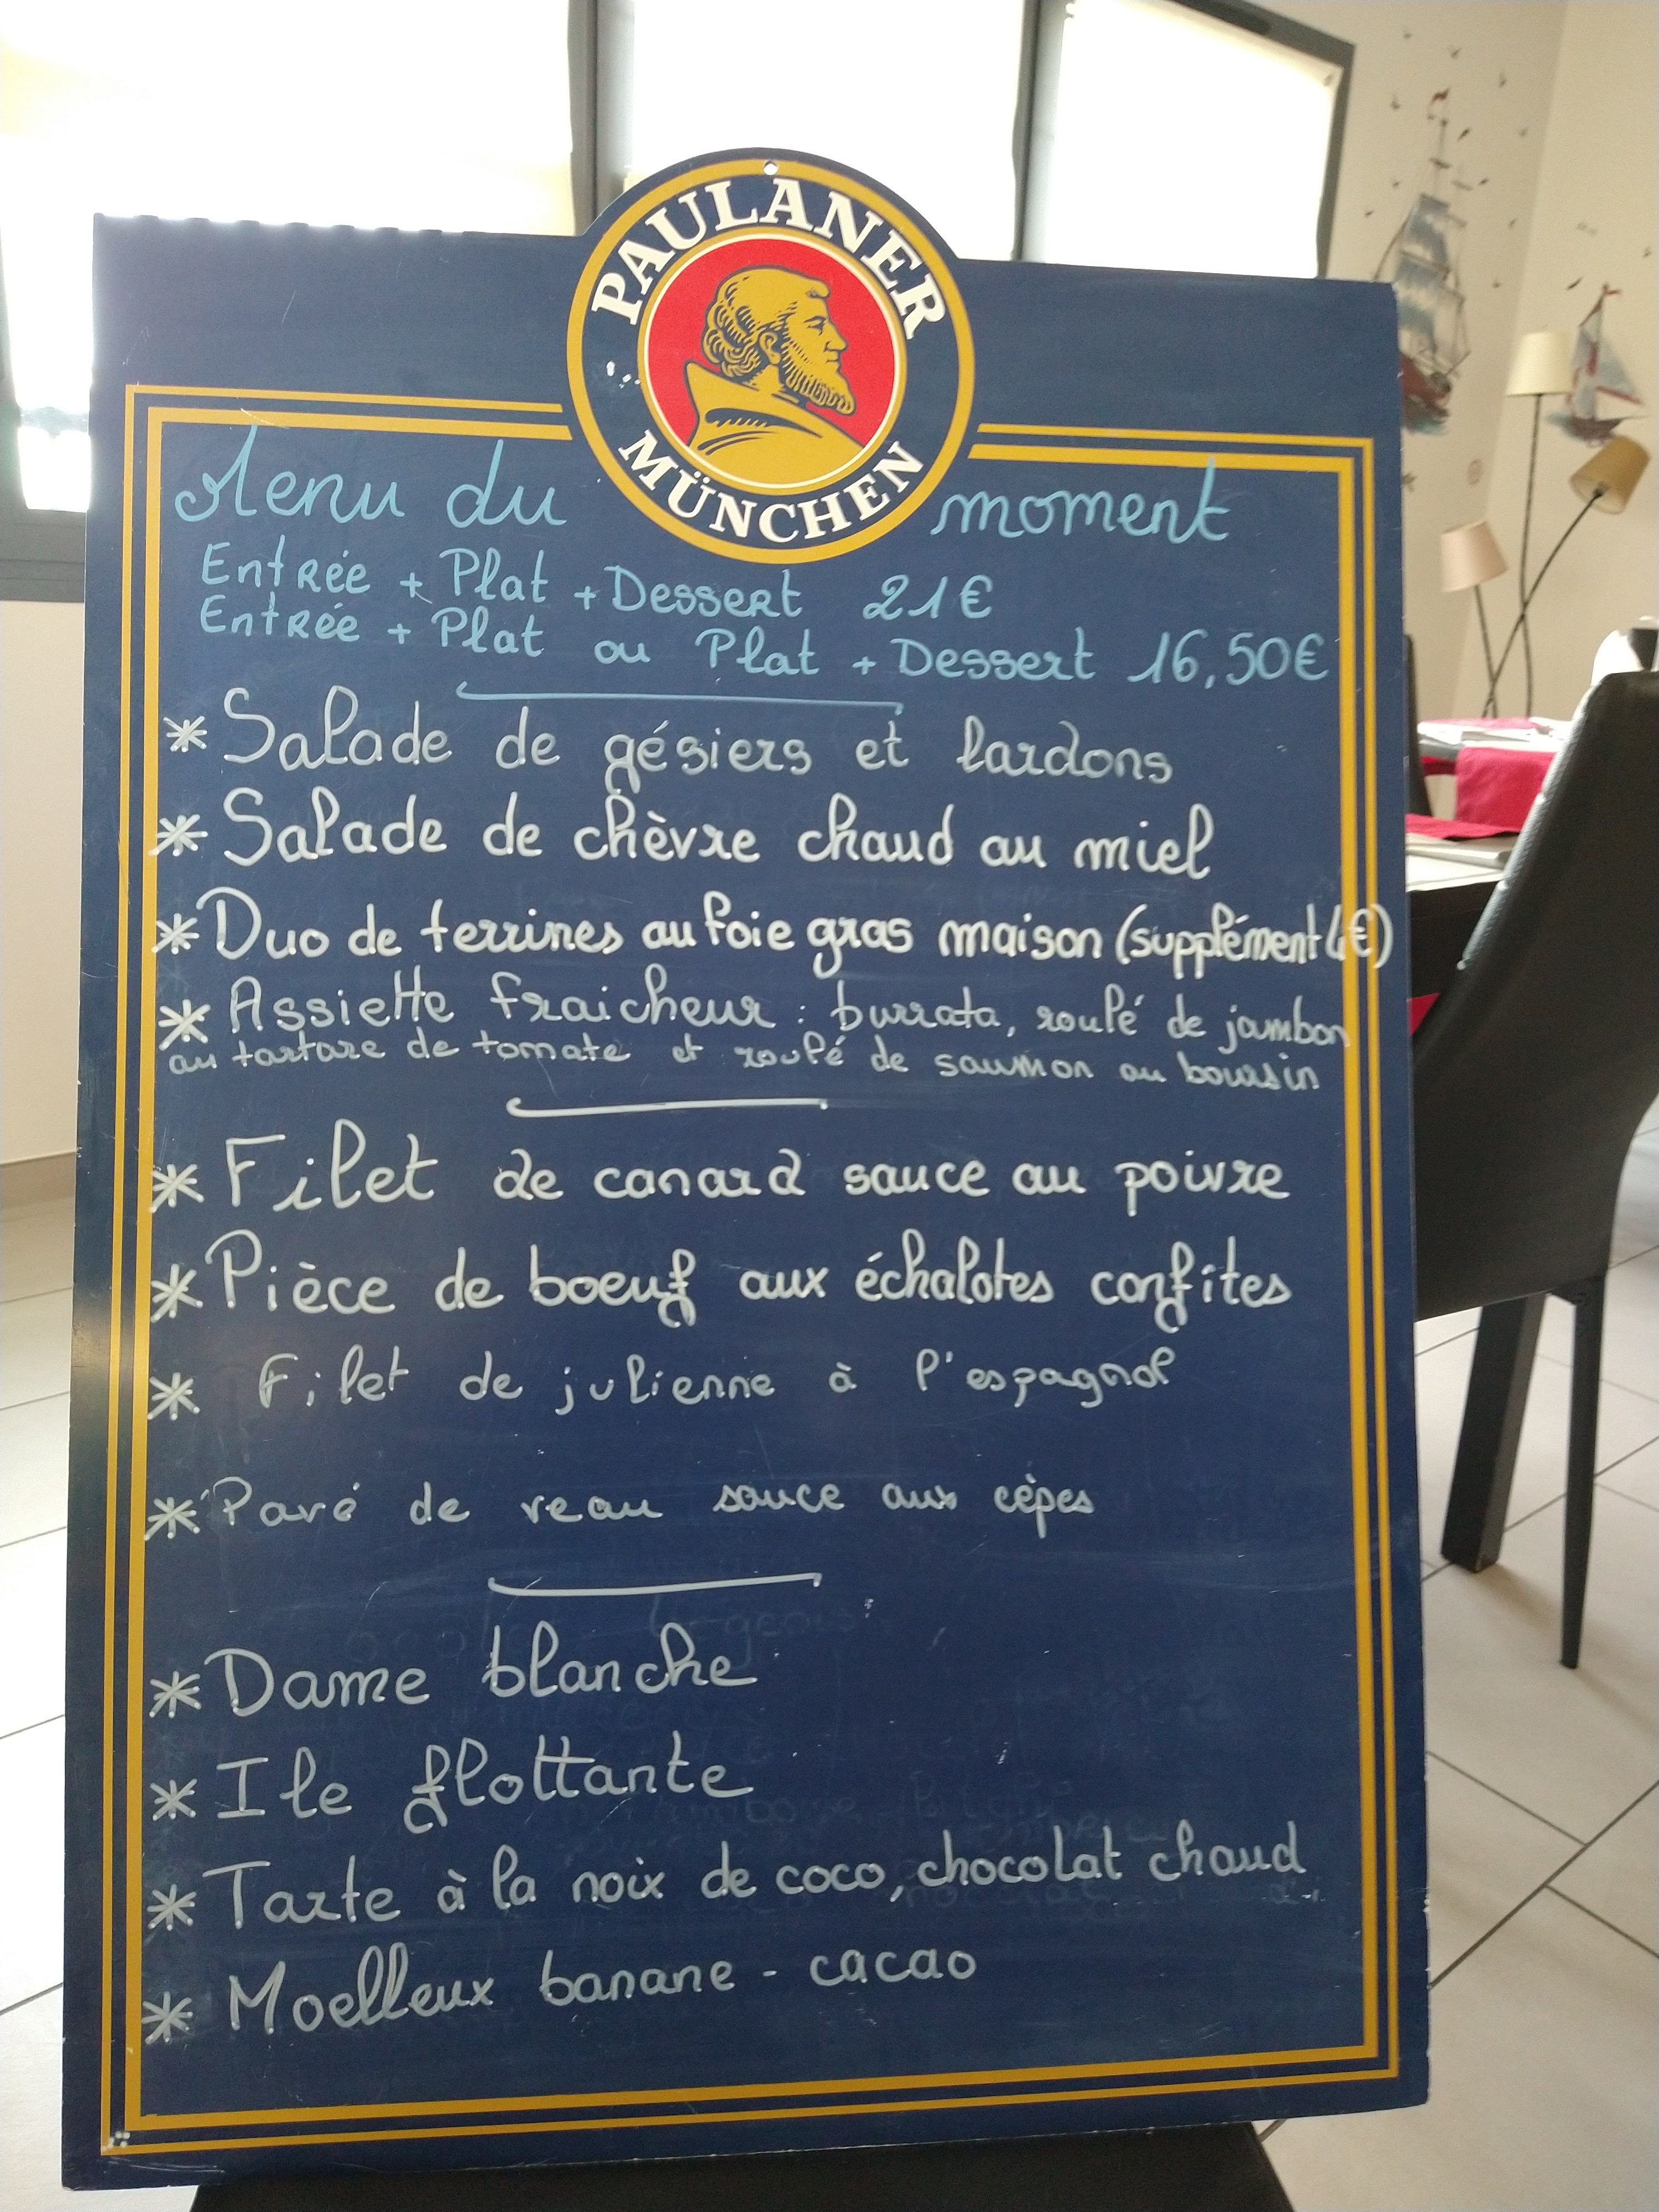 PAULANER
MÜNCHEN
Menu du moment
Entrée + Plat + Dessert 21€
Entrée + Plat ou Plat + Dessert 16,50€
* Salade de gésiers et lardons
* Salade de chèvre chaud au miel
* Duo de terrines au foie gras maison (supplément 4€)
* Assiette fraicheur : burrata, roulé de jambon
au tartare de tomate et roulé de saumon au boursin
* Filet de canard sauce au poivre
* Pièce de boeuf aux échalotes confites
* Filet de julienne à l'espagnol
* Pavé de veau sauce aux cèpes
* Dame blanche
* Ile flottante
* Tarte à la noix de coco, chocolat chaud
* Moelleux banane - cacao